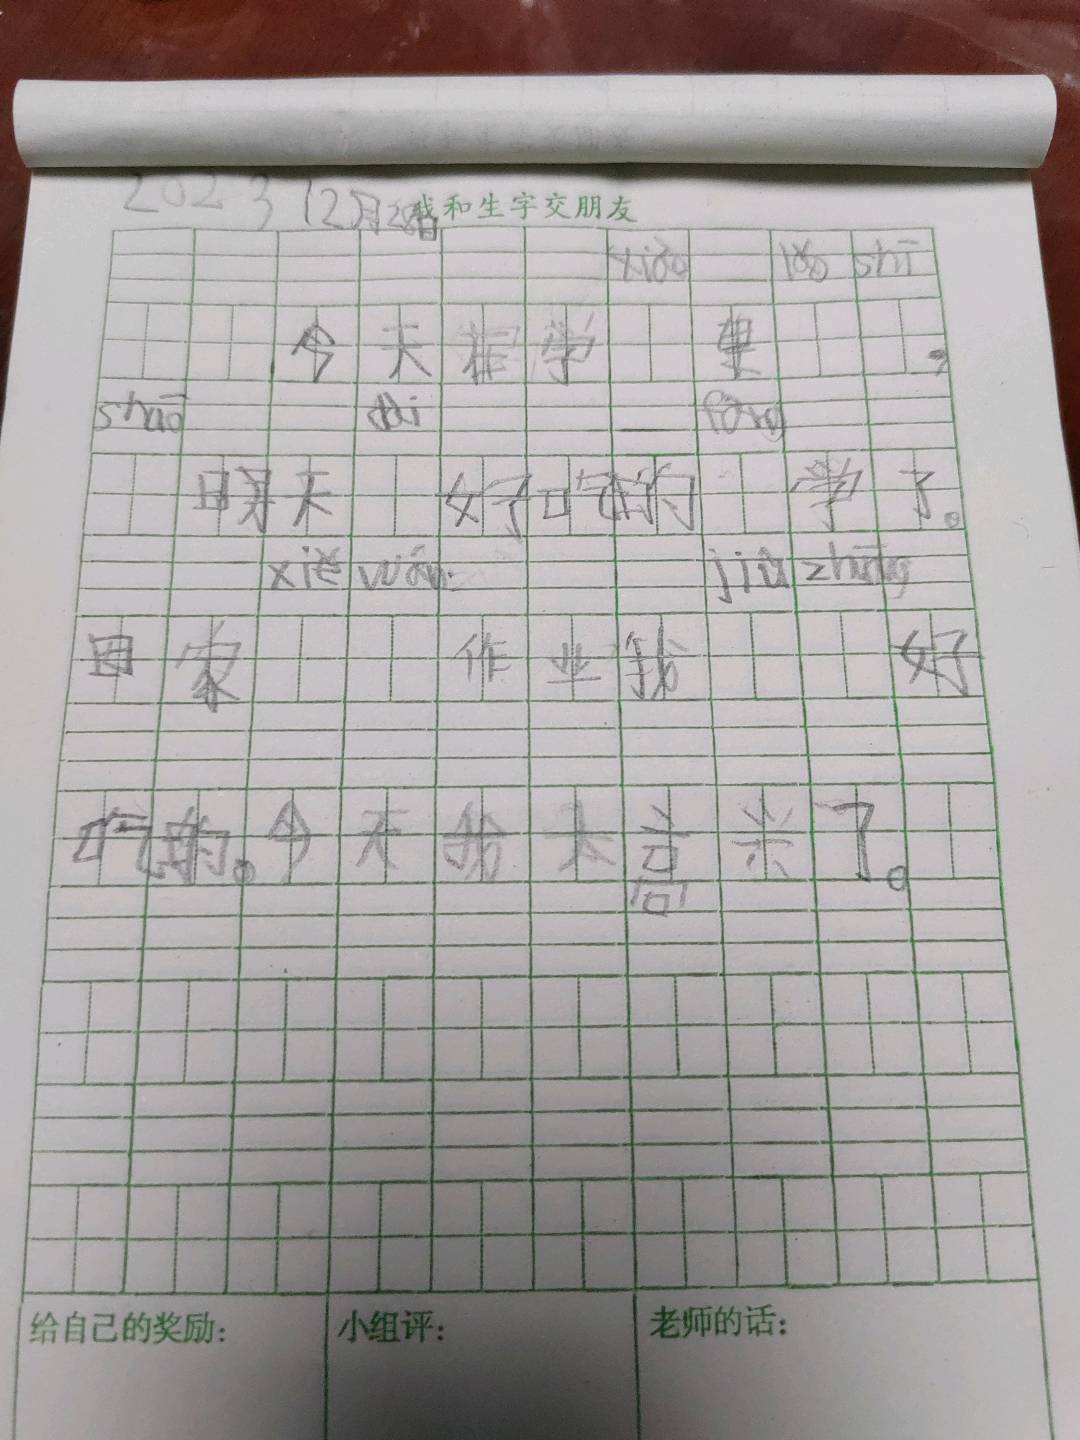 2023 12月28日
我和生字交朋友
xiào lǎo shī
今天在学里,
shuō dài fàng
明天好吃的学了。
xiě wán jiù zhǔng
回家作业我好
吃的。今天我太高兴了。
给自己的奖励: 小组评: 老师的话: